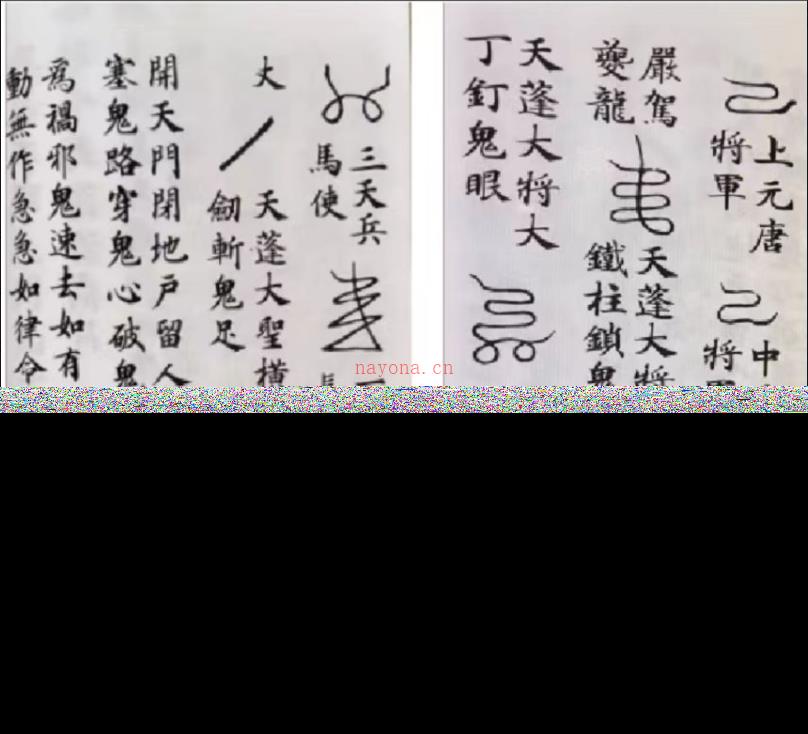 上元唐
將軍
中
將
嚴駕
夔龍
天蓬大將
鐵柱鎖鬼
天蓬大將大
丁釘鬼眼
三天兵
馬使
天蓬大聖橫
劒斬鬼足
開天門閉地戶留人
塞鬼路穿鬼心破鬼
爲禍邪鬼速去如有
動無作急急如律令
nayona.cn